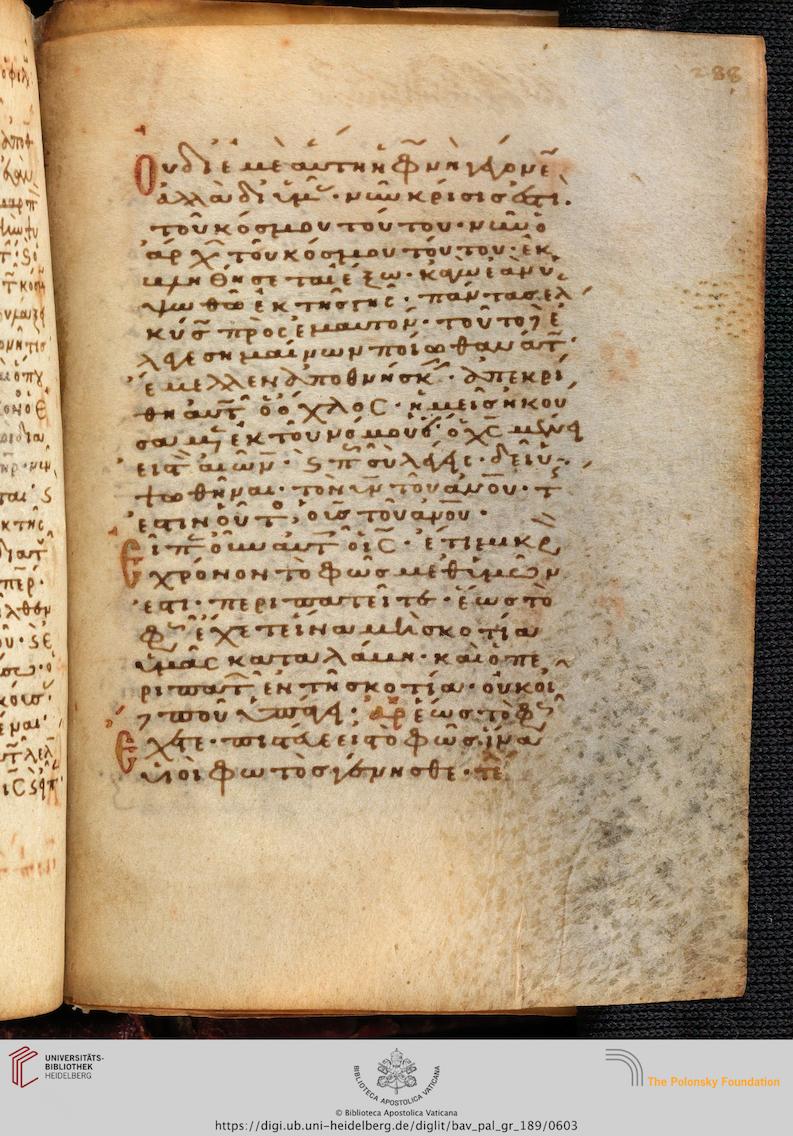 288
Οὐ δι ἐμὲ αὕτη ἡ φωνὴ γέγονε
ἀλλὰ δι ὑμᾶς· νῦν κρίσις ἐστὶ
τοῦ κόσμου τούτου· νῦν ὁ
ἄρχων τοῦ κόσμου τούτου· ἐκ
θήσεται ἔξω· κἀγὼ ἐὰν ὑ
ψωθῶ ἐκ τῆς γῆς· πάντας ἑλ
κύσω πρὸς ἐμαυτόν· τοῦτο δὲ ἔ
λεγε σημαίνων ποίω θανάτω
ἔμελλεν ἀποθνήσκειν· ἀπεκρί
θη αὐτῶ ὁ ὄχλος· ἡμεῖς ἠκού
σαμεν ἐκ τοῦ νόμου ὅτι ὁ χς μένει
εἰς τὸν αἰῶνα· καὶ πῶς σὺ λέγεις· δεῖ ὑ
ψωθῆναι· τὸν υν τοῦ ανου· τίς
ἐστιν οὗτος ὁ υς τοῦ ανου·
Εἶπεν οὖν αὐτοῖς ὁ ις· ἔτι μικρὸν
χρόνον τὸ φῶς μεθ ὑμῶν
ἐστι· περιπατεῖτε· ἕως τὸ
φῶς ἔχετε ἵνα μὴ σκοτία
ὑμᾶς καταλάβη· καὶ ὁ πε
ριπατῶν ἐν τῆ σκοτία· οὐκ οἶ
δε ποῦ ὑπάγει· ἕως τὸ φῶς
Ἔχετε· πιστεύετε εἰς τὸ φῶς· ἵνα
υἱοὶ φωτὸς γένησθε·
UNIVERSITÄTS-
BIBLIOTHEK
HEIDELBERG
BIBLIOTECA APOSTOLICA VATICANA
The Polonsky Foundation
© Biblioteca Apostolica Vaticana
https://digi.ub.uni-heidelberg.de/diglit/bav_pal_gr_189/0603